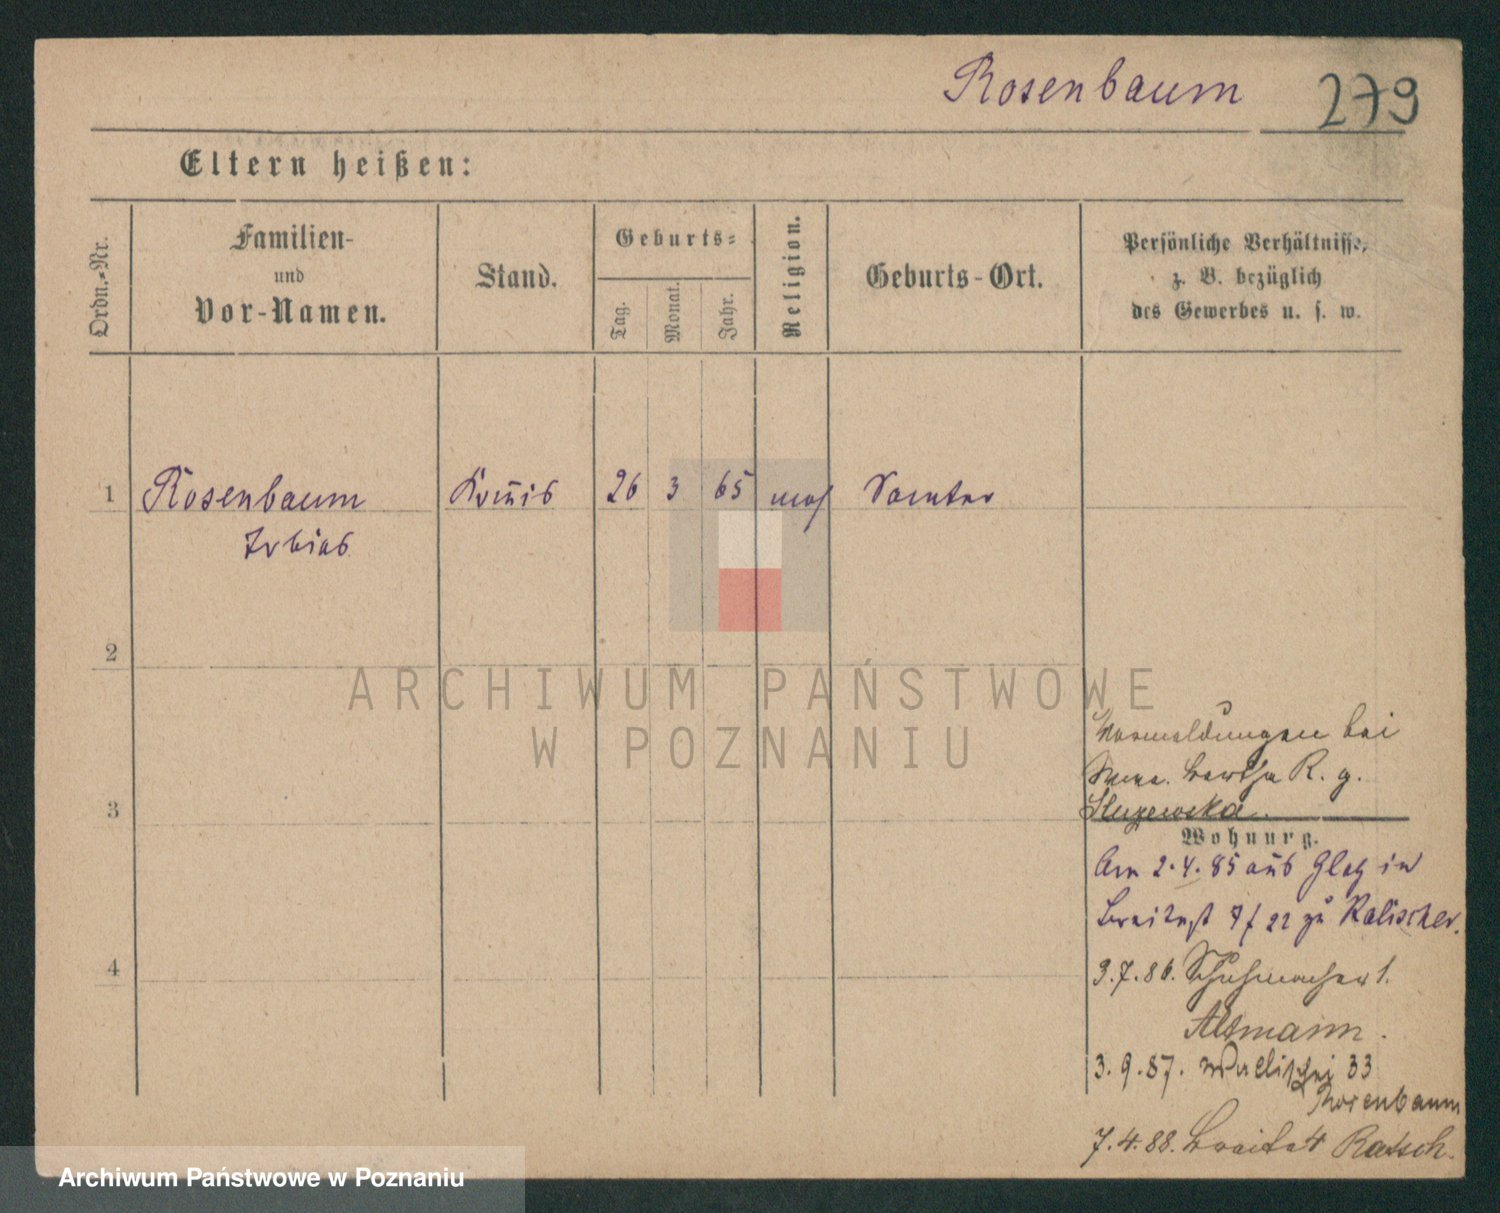 Rosenbaum 279
Eltern heißen:
Ordn.-Nr.
Familien-
und
Vor-Namen.
Stand.
Geburts-
Tag.
Monat.
Jahr.
Religion.
Geburts-Ort.
Persönliche Verhältnisse,
z. B. bezüglich
des Gewerbes u. s. w.
1 Rosenbaum Kom̄is 26 3 65 mos Samter
Tobias
2
3
4
ARCHIWUM PAŃSTWOWE
W POZNANIU
bei
Bertha R. g.
Wohnung.
Am 2.4.85 aus Glatz in
Breitestr 7/ 22 zu Kalischer.
3.7.86. Schuhmacher 1.
Altmann.
3.9.87. Wallischei 33
Rosenbaum
7.4.88. Breite 4 Ratsch.
Archiwum Państwowe w Poznaniu